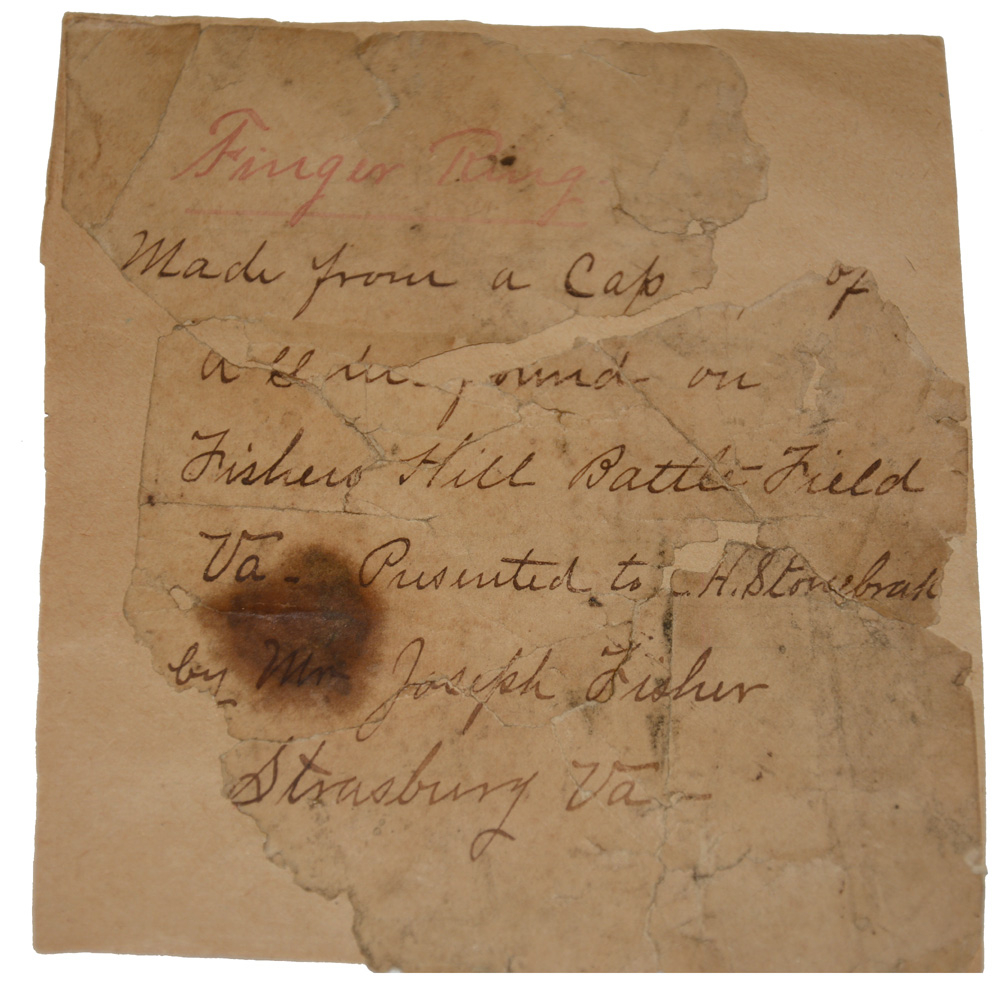 Finger Ring
Made from a Cap of
a found on
Fishers Hill Battle Field
Va - Presented to H. Stonebrak
by Mr Joseph Fisher
Strasburg Va -